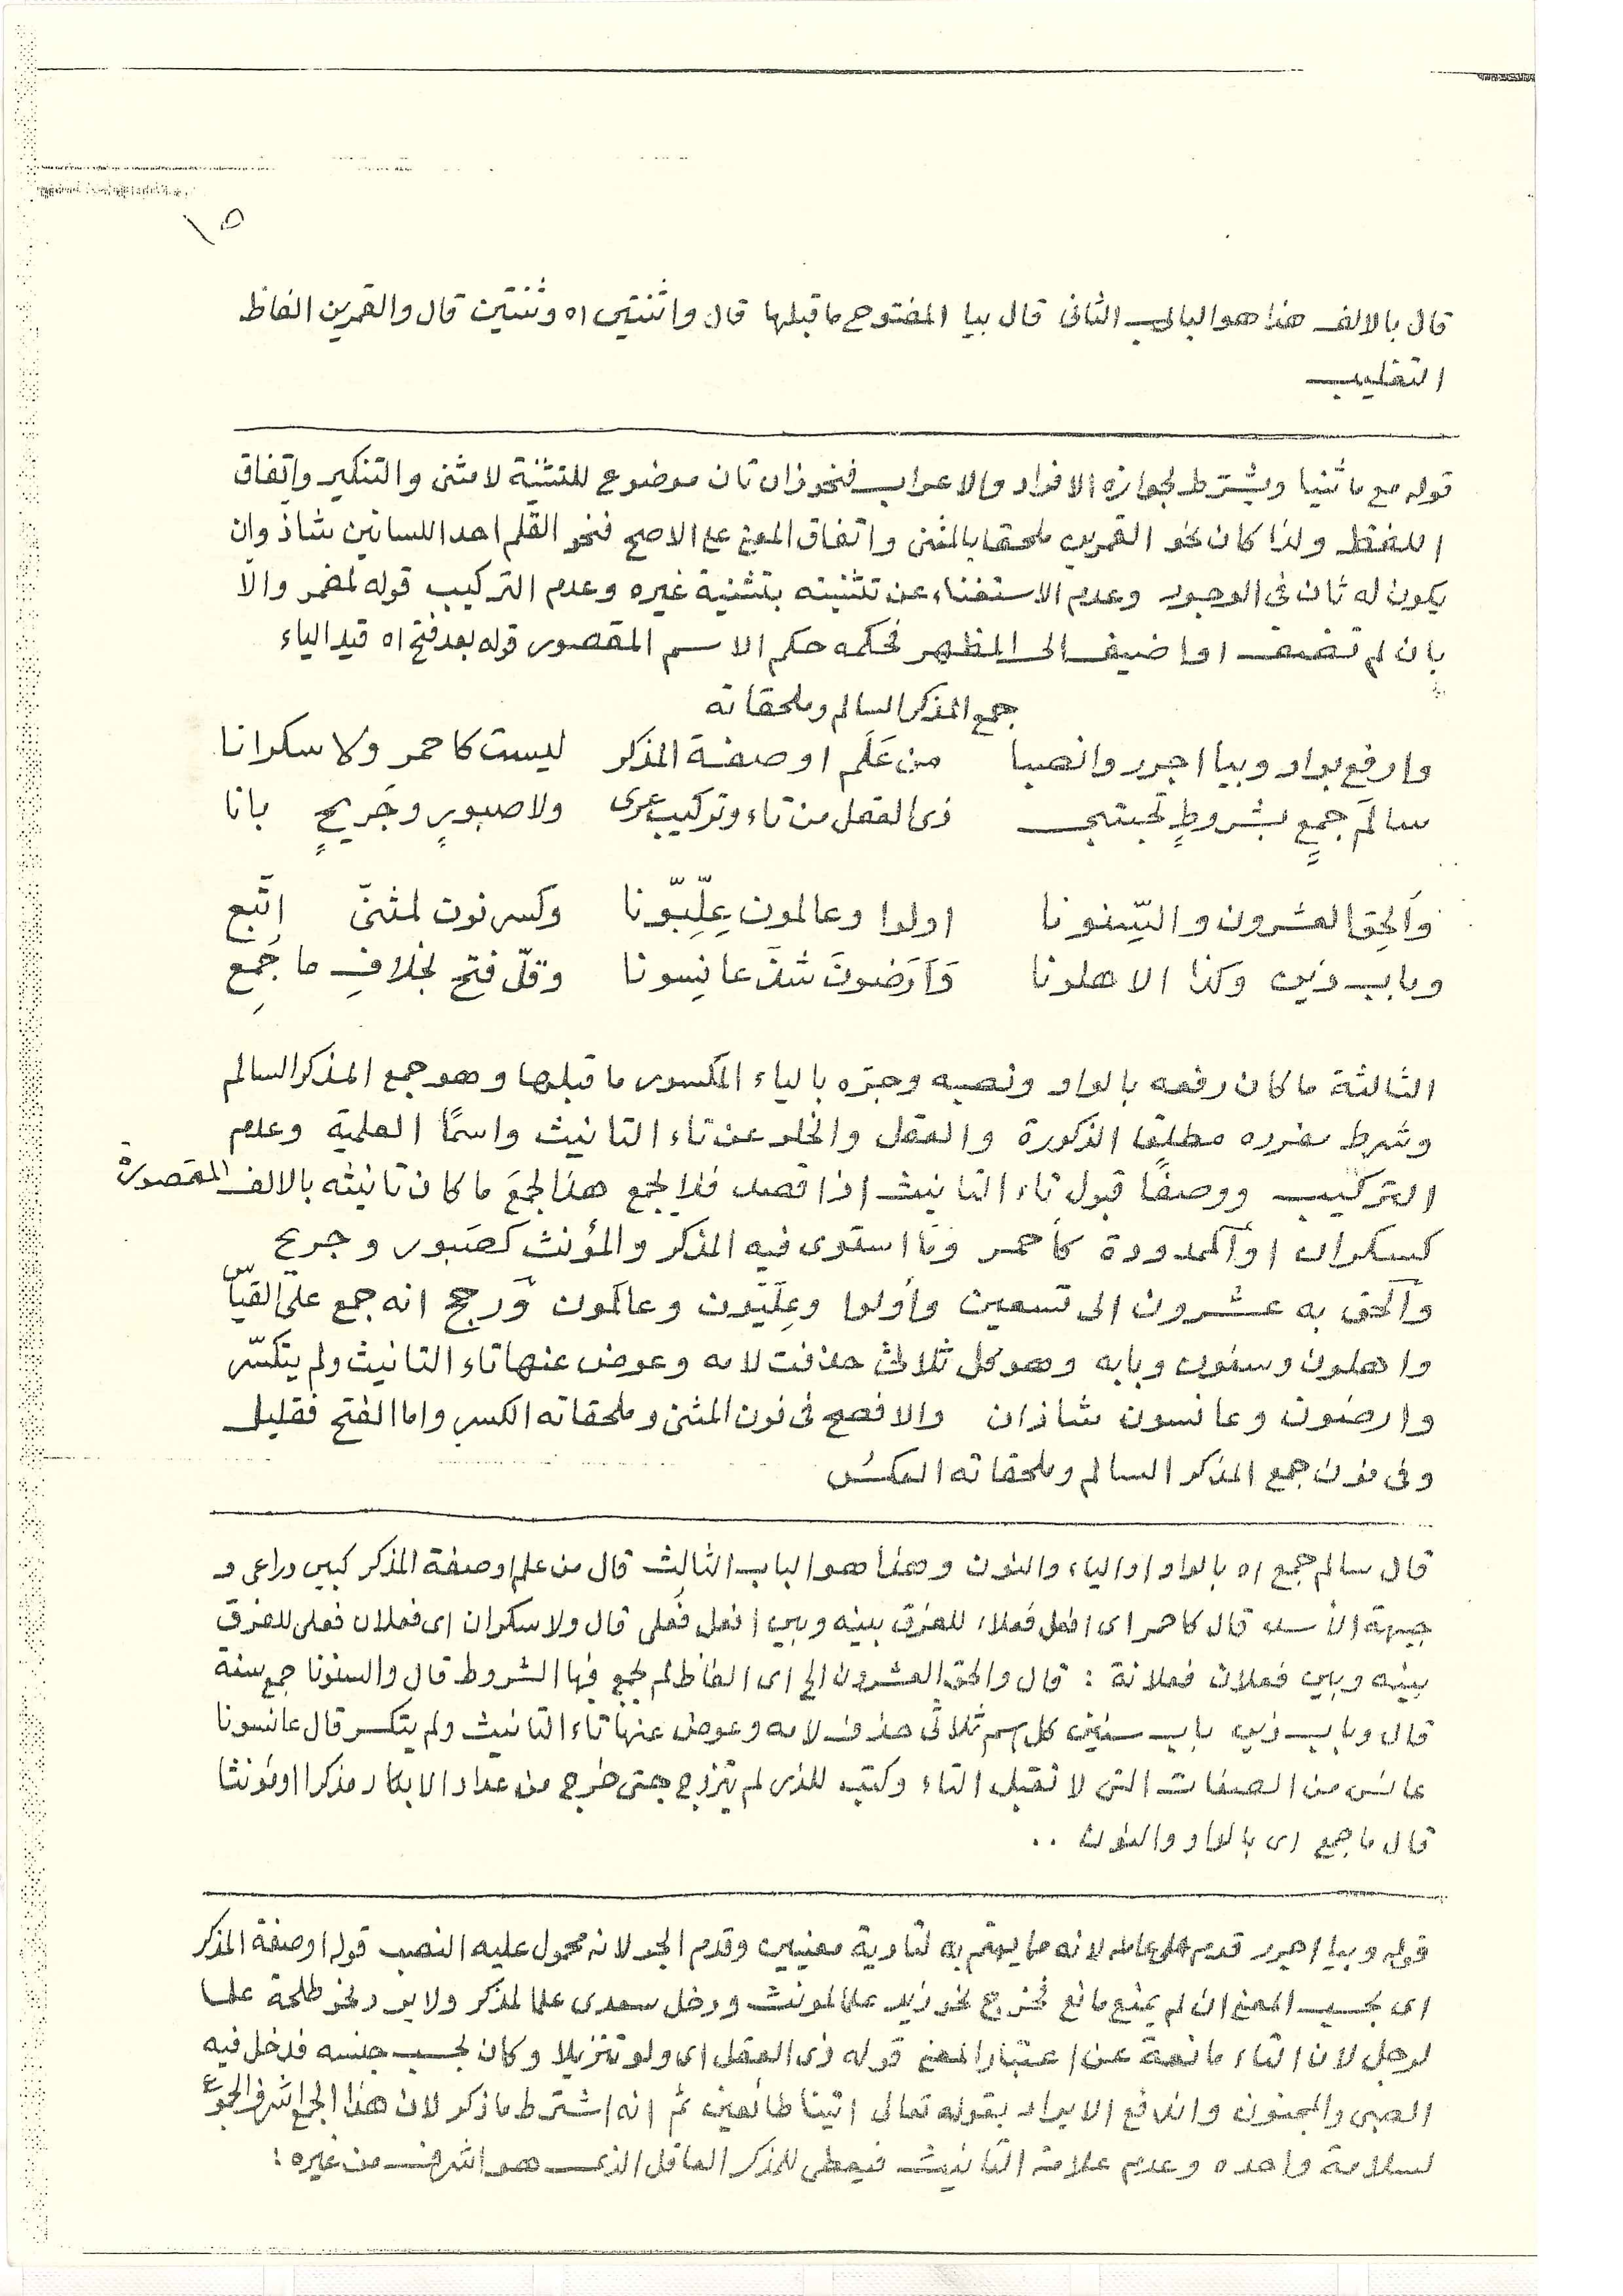 ١٥
قال بالالف هذا هو الباب الثانى قال بيا المفتوح ما قبلها قال واثنتين اه وثنتين قال والقمرين الفاظ
التغليب
قوله مع ما ثنيا ويشترط لجوازه الافراد والاعراب فنحو ذان تان موضوع للتثنية لا مثنى والتنكير واتفاق
اللفظ ولذا كان نحو القمرين ملحقا بالمثنى واتفاق المعنى على الاصح فنحو القلم احد اللسانين شاذ وان
يكون له ثان فى الوجود وعدم الاستغناء عن تثنيته بتثنية غيره وعدم التركيب قوله لمضمر والّا
بان لم تضف او اضيف الى المظهر فحكمه حكم الاسم المقصور قوله بعد فتح اه قيد الياء
جمع المذكر السالم وملحقاته
وارفع بواو وبيا اجرر وانصبا من عَلَم او صفة المذكر ليست كاحمر ولا سكرانا
سالمَ جمعٍ بشروطٍ تجتبى ذى العقل من تاء وتركيب عرى ولا صبورٍ وجَريحٍ بانا
وَاَلحِق العشرون والسّنونا اولوا وعالمون عِلّيّونا وكسر نون لمثنىّ اتّبع
وباب زين وكذا الاهلونا وَاَرَضونَ شذَّ عانِسونا وقلّ فتح بخلافِ ما جُمِع
الثالثة ما كان رفعه بالواو ونصبه وجرّه بالياء المكسور ما قبلها وهو جمع المذكر السالم
وشرط مفرده مطلقا الذكورة والعقل والخلو عن تاء التانيث واسمًا العلمية وعدم
التركيب ووصفًا قبول تاء التانيث اذا قصد فلا يجمع هذا الجمعَ ما كان تانيثه بالالف المقصورة
كسكران او الممدودة كأحمر وما استوى فيه المذكر والمؤنث كصَبور وجريح
وألحق به عشرون الى تسعين وأولوا وعِلّيّون وعالمون ورجح انه جمع على القياس
واهلون وسنون وبابه وهو كل ثلاثى حذفت لامه وعوض عنها تاء التانيث ولم يتكسّر
وارضون وعانسون شاذان والافصح فى نون المثنى وملحقاته الكسر واما الفتح فقليل
وفى نون جمع المذكر السالم وملحقاته العكس
قال سالم جمع اه بالواو او الياء والنون وهذا هو الباب الثالث قال من علم او صفة المذكر كبين وراعى و
جبهة الأسد قال كاحمر اى افعل فعلاء للفرق بينه وبين افعل فُعلى قال ولا سكران اى فعلان فعلى للفرق
بينه وبين فعلان فعلانة : قال والحق العشرون الخ اى الفاظ لم يجمع فيها الشروط قال والسنونا جمع سنة
قال وباب زين باب سنين كل اسم ثلاثى حذف لامه وعوض عنها تاء التانيث ولم يتكسر قال عانسونا
عانس من الصفات التى لا تقبل التاء وكتب للذى لم يتزوج حتى خرج من عداد الابكار مذكرا او مؤنثا
قال ما جمع اى بالواو والنون ..
قوله وبيا اجرر قدم على عامله لانه مما يهتم به لتادية معنيين وقدم الجر لانه محمول عليه النصب قوله او صفة المذكر
اى بحسب المعنى ان لم يمنع مانع فخرج نحو زيد علما لمونث ودخل سعدى علما لمذكر ولا يرد نحو طلحة علما
لرجل لان التاء مانعة عن اعتبار المعنى قوله ذى العقل اى ولو تنزيلا وكان بحسب جنسه فدخل فيه
الصبى والمجنون واندفع الايراد بقوله تعالى اتينا طائعين ثم انه اشترط ما ذكر لان هذا الجمع اشرف الجموع
لسلامة واحده وعديم علامة التانيث فيعطى للمذكر العاقل الذى هو اشرف من غيره :